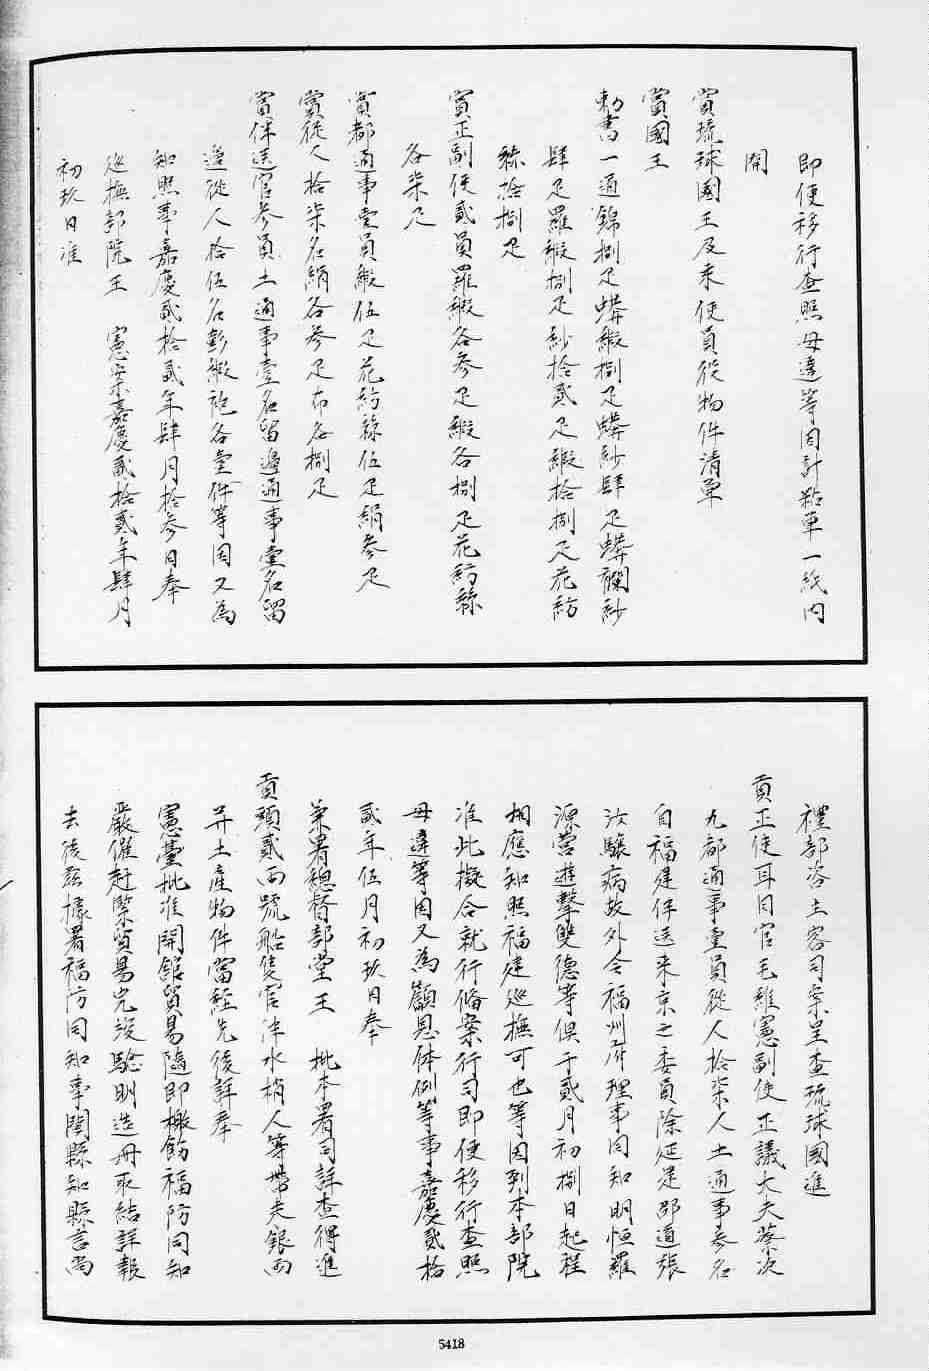 即便移行查照毋違等因計粘單一紙內
開
賞琉球國王及来使員役物件清單
賞國王
勅書一道錦捌疋蟒緞捌疋蟒紗肆疋蟒襴紗
肆疋羅緞捌疋紗拾貳疋緞拾捌疋花紡
絲拾捌疋
賞正副使貳員羅緞各參疋緞各捌疋花紡絲
各柒疋
賞都通事壹員緞伍疋花紡絲伍疋絹參疋
賞從人拾柒名絹各參疋布各捌疋
賞伴送官參員土通事壹名留邊通事壹名留
邊從人拾伍名彭緞袍各壹件等因又為
知照事嘉慶貳拾貳年肆月拾參日奉
巡撫部院王　憲案嘉慶貳拾貳年肆月
初玖日准
禮部咨主客司案呈查琉球國進
貢正使耳目官毛維憲副使正議大夫蔡次
九都通事壹員從人拾柒人土通事參名
自福建伴送来京之委員除延建邵道張
汝驤病故外令福州府理事同知明恒羅
源營遊擊雙德等俱于貳月初捌日起程
相應知照福建巡撫可也等因到本部院
准此擬合就行備案行司即便移行查照
毋違等因又為籲恩体例等事嘉慶貳拾
貳年伍月初玖日奉
兼署總督部堂王　批本署司詳查得進
貢頭貳両號船隻官伴水梢人等帶走銀両
并土產物件當經先後詳奉
憲臺批准開館貿易隨即檄飭福防同知
嚴催赶緊貿易完竣驗明造冊取結詳報
去後茲據署福防同知事閩縣知縣言尚
5418